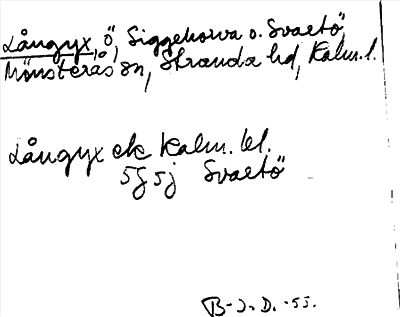 Långyx, ö, Siggehorva o. Svartö,
Mönsterås sn, Stranda hd, Kalm. l.
Långyx ek Kalm. bl.
5G 5j Svartö
B-J. D. -55.